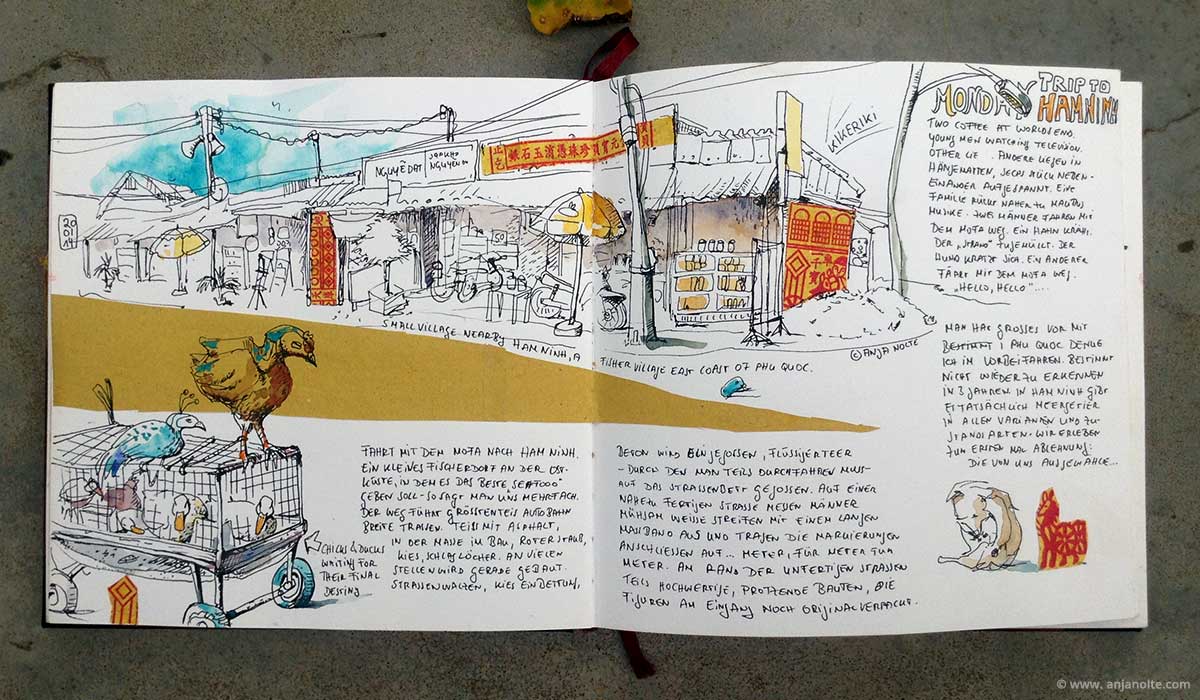 20
01
14
NGUYỄ DAT
NGUYEN
KIKERIKI
SMALL VILLAGE NEARBY HAM NINH, A
FISHER VILLAGE EAST COAST OF PHU QUOC.
© ANJA NOLTE
MONDAY
TRIP TO
HAMNINH
TWO COFFEE AT WORLDSEND.
YOUNG MEN WATCHING TELEVISION.
OTHER LIE . ANDERE LIEGEN IN
HÄNGEMATTEN, SECHS STÜCK NEBEN-
EINANDER AUFGESPANNT. EINE
FAMILIE RÜCKT NÄHER ZU
MUSIKE. ZWEI MÄNNER FAHREN MIT
DEM MOFA WEG. EIN HAHN KRÄHT.
DER „STRAND" ZUGEMÜLLT. DER
HUND KRATZT SICH. EIN ANDERER
FÄHRT MIT DEM MOFA WEG.
„HELLO, HELLO"....
MAN HAT GROSSES VOR MIT
PHU QUOC DENKE
ICH IM VORBEIFAHREN. BESTIMMT
NICHT WIEDER ZU ERKENNEN
IN 3 JAHREN. IN HAM NINH GIBT
ES TATSÄCHLICH MEERGETIER
IN ALLEN VARIANTEN UND ZU-
STANDSARTEN. WIR ERLEBEN
ZUM ERSTEN MAL ABLEHNUNG.
DIE VON UNS AUSGEWÄHLE...
FAHRT MIT DEM MOFA NACH HAM NINH.
EIN KLEINES FISCHERDORF AN DER OST-
KÜSTE, IN DEM ES DAS BESTE SEAFOOD
GEBEN SOLL - SO SAGT MAN UNS MEHRFACH.
DER WEG FÜHRT GRÖSSTENTEILS AUTOBAHN
BREITE TRASSEN. TEILS MIT ASPHALT,
IN DER MASSE IM BAU, ROTER STAUB,
KIES, SCHLAGLÖCHER. AN VIELEN
STELLEN WIRD GERADE GEBAUT.
STRASSENWALZEN, KIES EINDECKUNG,
CHICKS & DUCKS
WAITING FOR
THEIR FINAL
DESTINY
BETON WIRD EINGEGOSSEN, FLÜSSIGER TEER
- DURCH DEN MAN TEILS DURCHFAHREN MUSS -
AUF DAS STRASSENBETT GEGOSSEN. AUF EINER
NAHEZU FERTIGEN STRASSE MESSEN MÄNNER
MÜHSAM WEISSE STREIFEN MIT EINEM LANGEN
MASSBAND AUS UND TRAGEN DIE MARKIERUNGEN
ANSCHLIESSEN AUF... METER, FÜR METER FÜR
METER. AM RAND DER UNFERTIGEN STRASSEN
TEILS HOCHWERTIGE, PROTZENDE BAUTEN, DIE
FIGUREN AM EINGANG NOCH ORIGINALVERPACKT.
© www. anjanolte.com